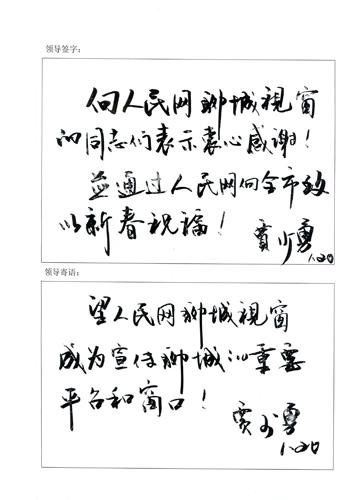 领导签字：
向人民网聊城視窗
的同志们表示衷心感谢！
并通过人民网向全市致
以新春祝福！
贾少勇
1.20
领导寄语：
望人民网聊城視窗
成为宣传聊城的重要
平台和窗口！
贾少勇
1.20